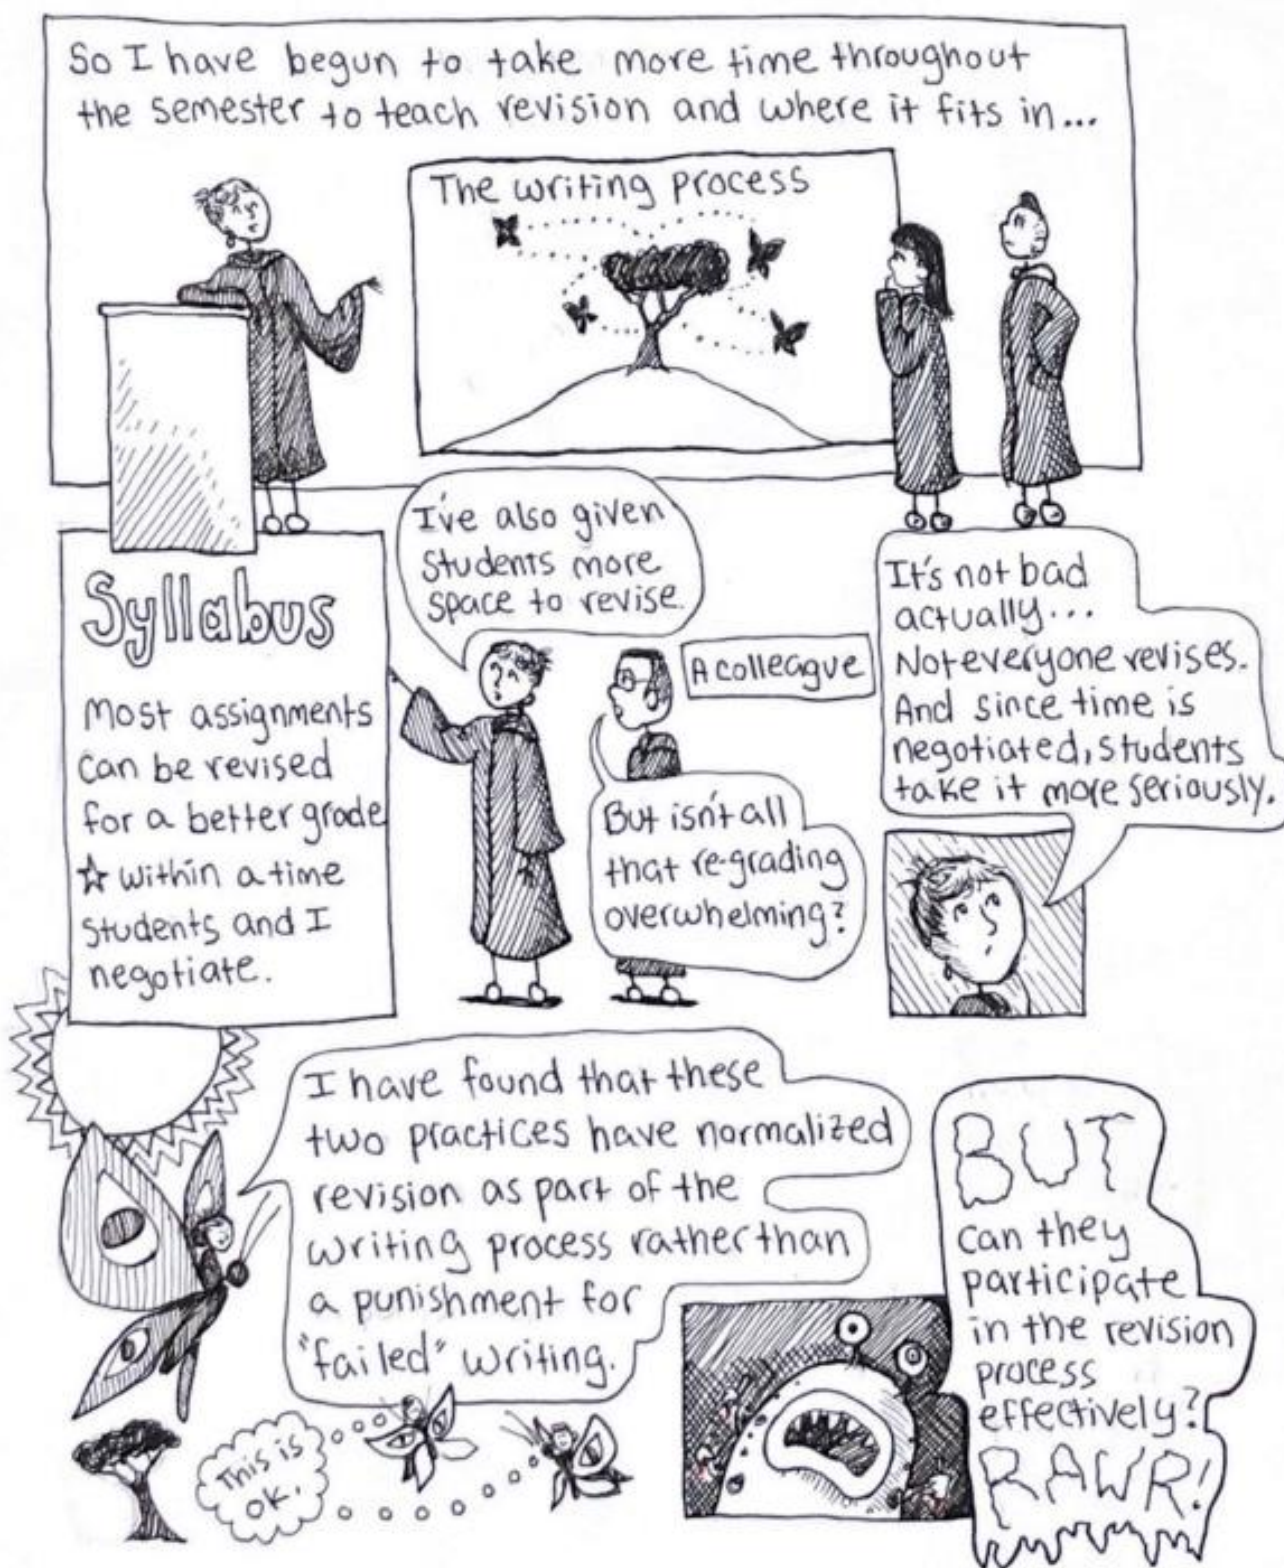 So I have begun to take more time throughout
the semester to teach revision and where it fits in...
The writing process
I've also given
students more
space to revise.
Syllabus
Most assignments
can be revised
for a better grade
☆ within a time
students and I
negotiate.
A colleague
But isn't all
that re-grading
overwhelming?
It's not bad
actually...
Not everyone revises.
And since time is
negotiated, students
take it more seriously.
I have found that these
two practices have normalized
revision as part of the
writing process rather than
a punishment for
"failed" writing.
This is
OK.
BUT
can they
participate
in the revision
process
effectively?
RAWR!